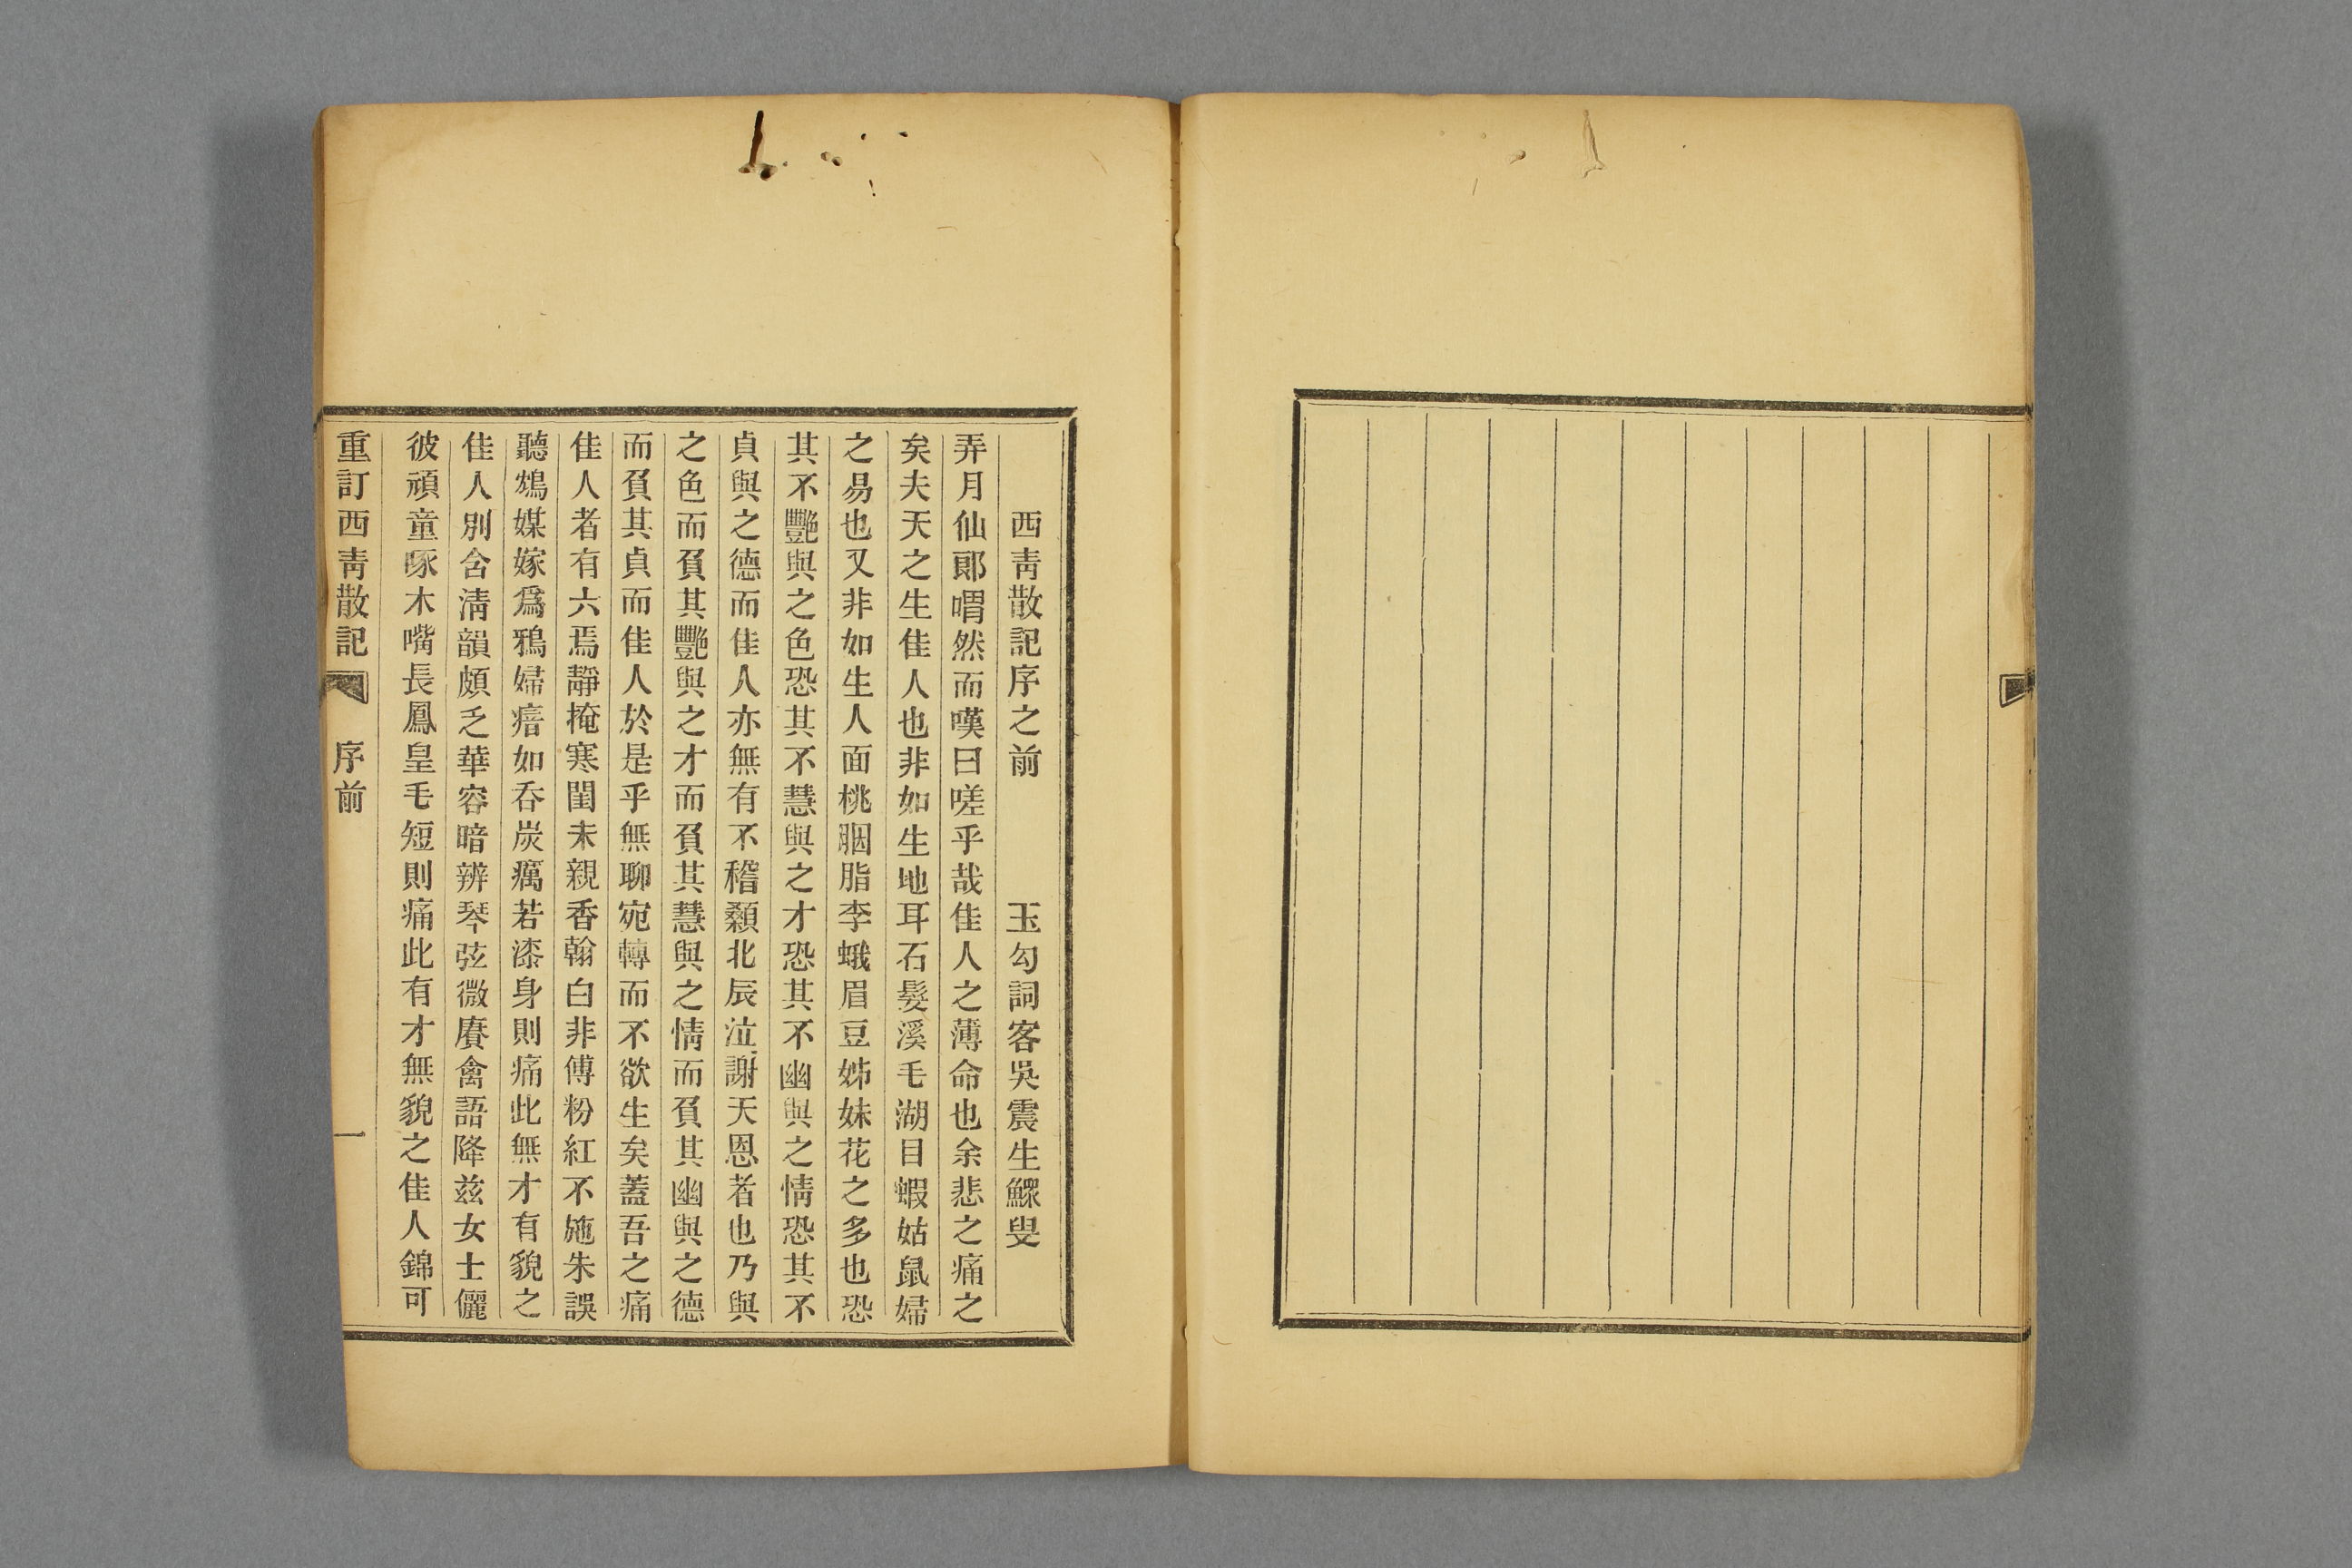 西靑散記序之前　　　玉勾詞客吳震生鰥叟
弄月仙郞喟然而嘆曰嗟乎哉佳人之薄命也余悲之痛之
矣夫天之生佳人也非如生地耳石髮溪毛湖目蝦姑鼠婦
之易也又非如生人面桃胭脂李蛾眉豆姊妹花之多也恐
其不豔與之色恐其不慧與之才恐其不幽與之情恐其不
貞與之德而佳人亦無有不稽顙北辰泣謝天恩者也乃與
之色而負其豔與之才而負其慧與之情而負其幽與之德
而負其貞而佳人於是乎無聊宛轉而不欲生矣蓋吾之痛
佳人者有六焉靜掩寒閨未親香翰白非傅粉紅不施朱誤
聽鴆媒嫁爲鴉婦瘖如吞炭癘若漆身則痛此無才有貌之
佳人別含淸韻頗乏華容暗辨琴弦微賡禽語降玆女士儷
彼頑童啄木嘴長鳳皇毛短則痛此有才無貌之佳人錦可
重訂西靑散記　序前　一